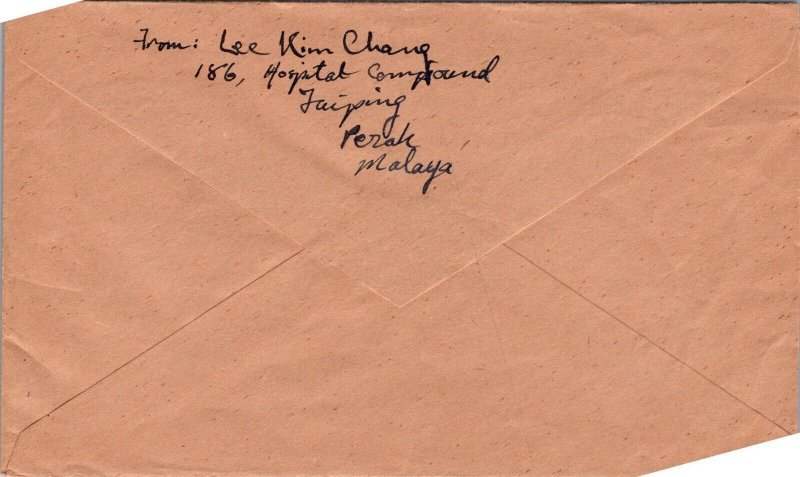 From: Lee Kim Chang
186, Hospital Compound
Taiping
Perak
Malaya